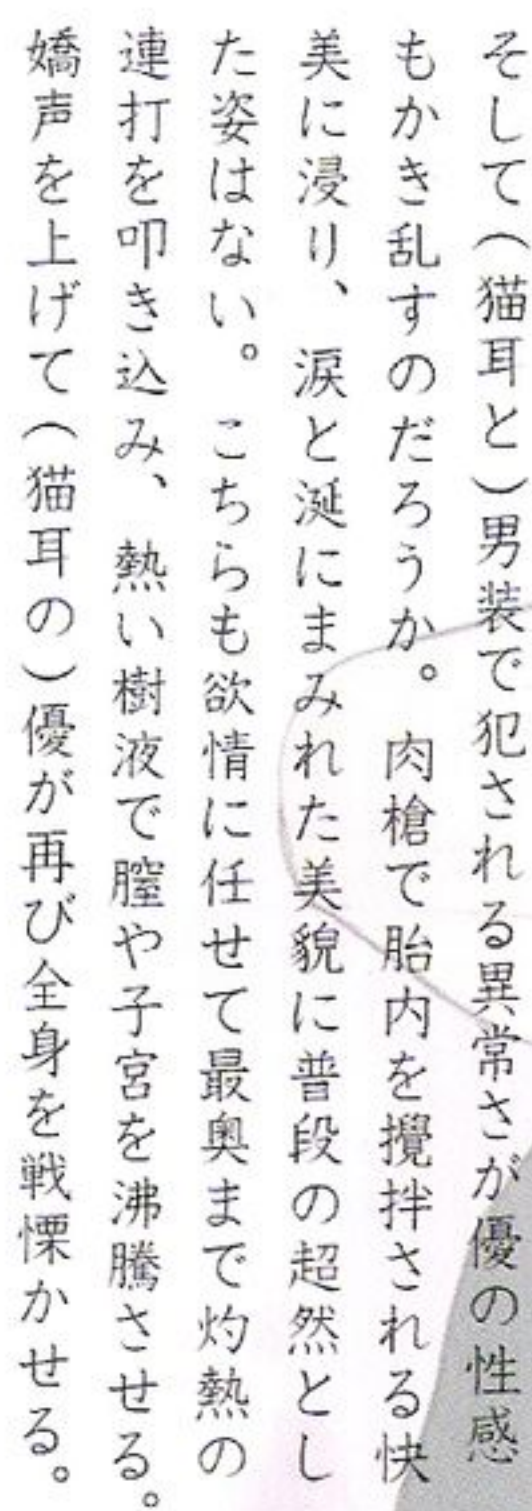 そして（猫耳と）男装で犯される異常さが優の性感
もかき乱すのだろうか。肉槍で胎内を攪拌される快
美に浸り、涙と涎にまみれた美貌に普段の超然とし
た姿はない。こちらも欲情に任せて最奥まで灼熱の
連打を叩き込み、熱い樹液で膣や子宮を沸騰させる。
嬌声を上げて（猫耳の）優が再び全身を戦慄かせる。